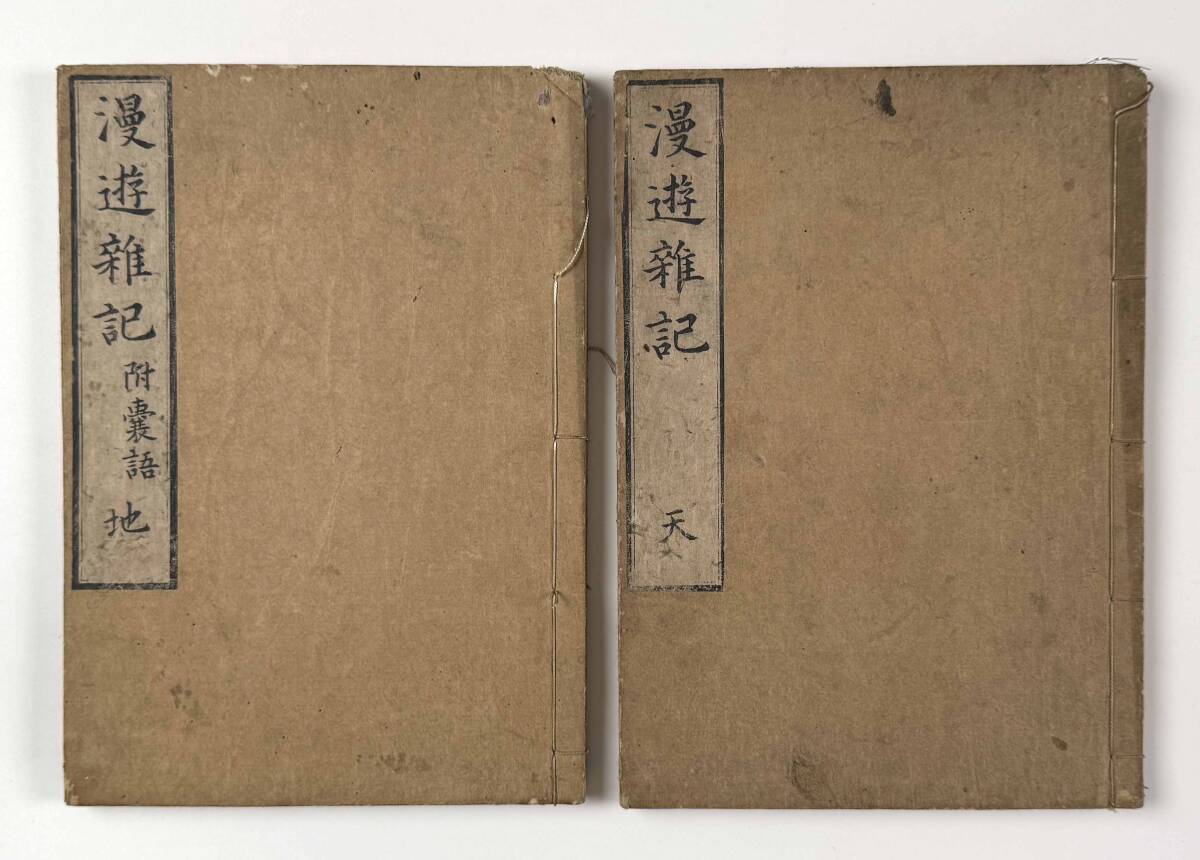 漫遊雜記 天
漫遊雜記 附嚢語 地